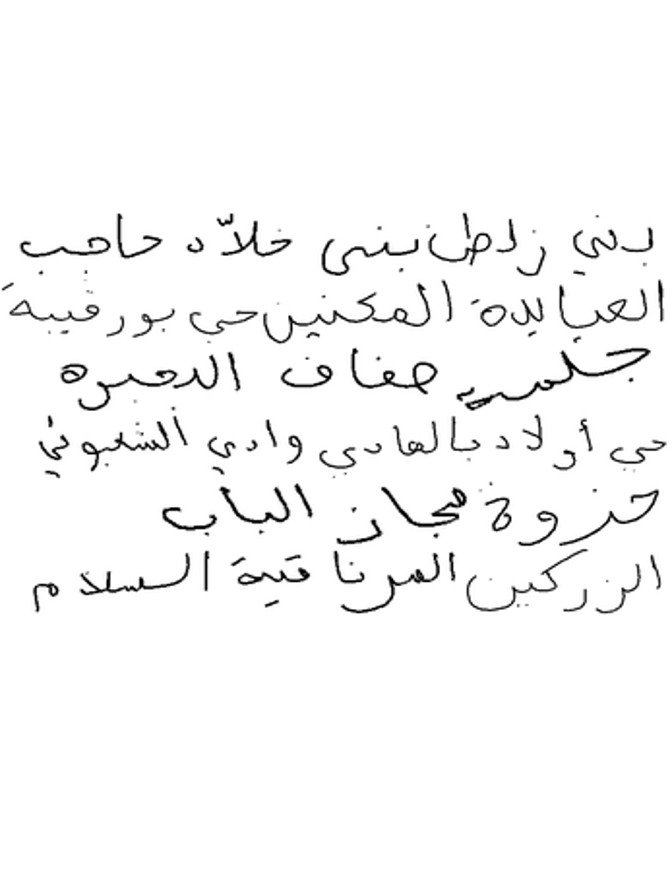 بني زلطن بنى خلاّد حاجب
العبايدة المكنين حي بورقيبة
ضفاف البحيرة
حي أولاد بالهادي وادي الشعبوني
حزوة مجاز الباب
الزركين المرناقية السلام